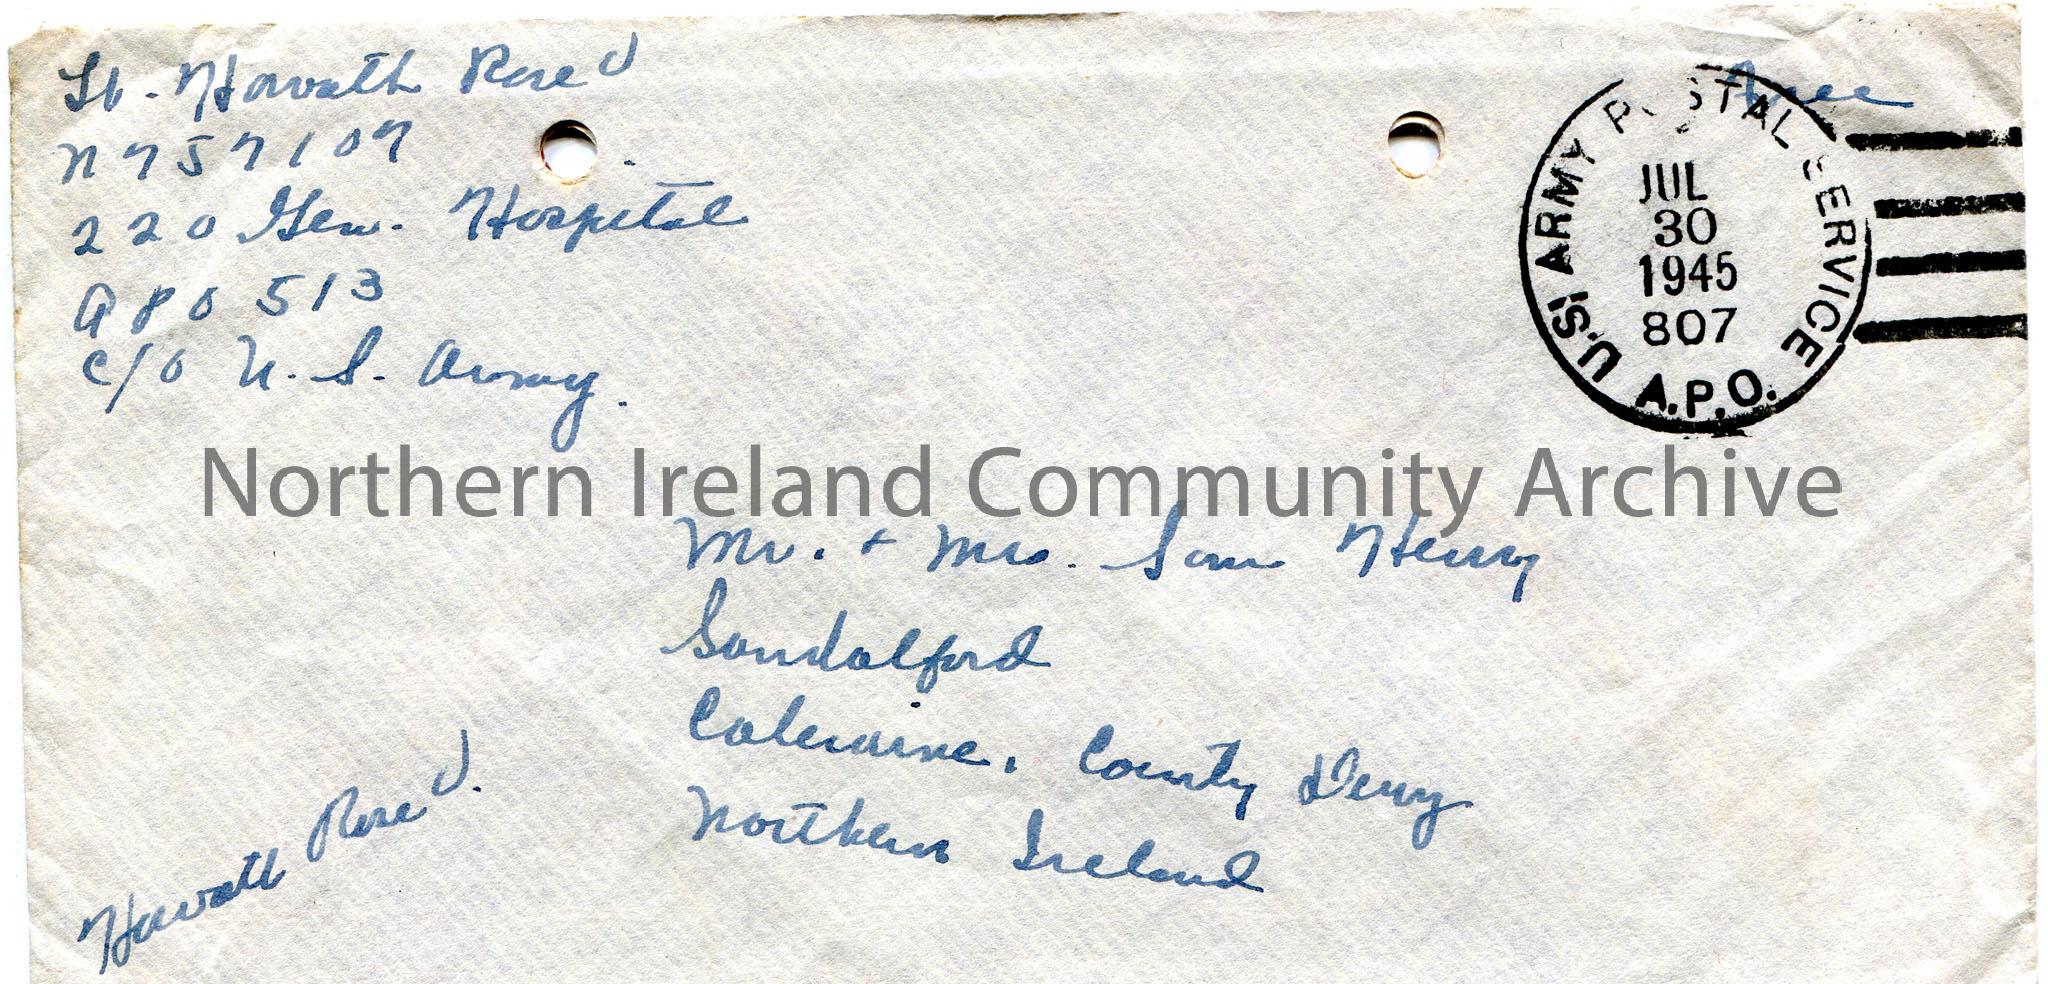 Lt. Horvath Rose J
N757107
220 Gen. Hospital
APO 513
c/o U.S. Army.
Free
U.S. ARMY POSTAL SERVICE
JUL
30
1945
807
A.P.O.
Northern Ireland Community Archive
Mr. + Mrs. Sam Henry
Sandalford
Coleraine, County Derry
Northern Ireland
Horvath Rose J.